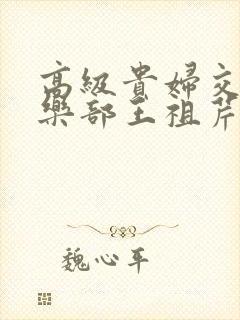 高級貴婦交
樂部王祖芹
魏心平